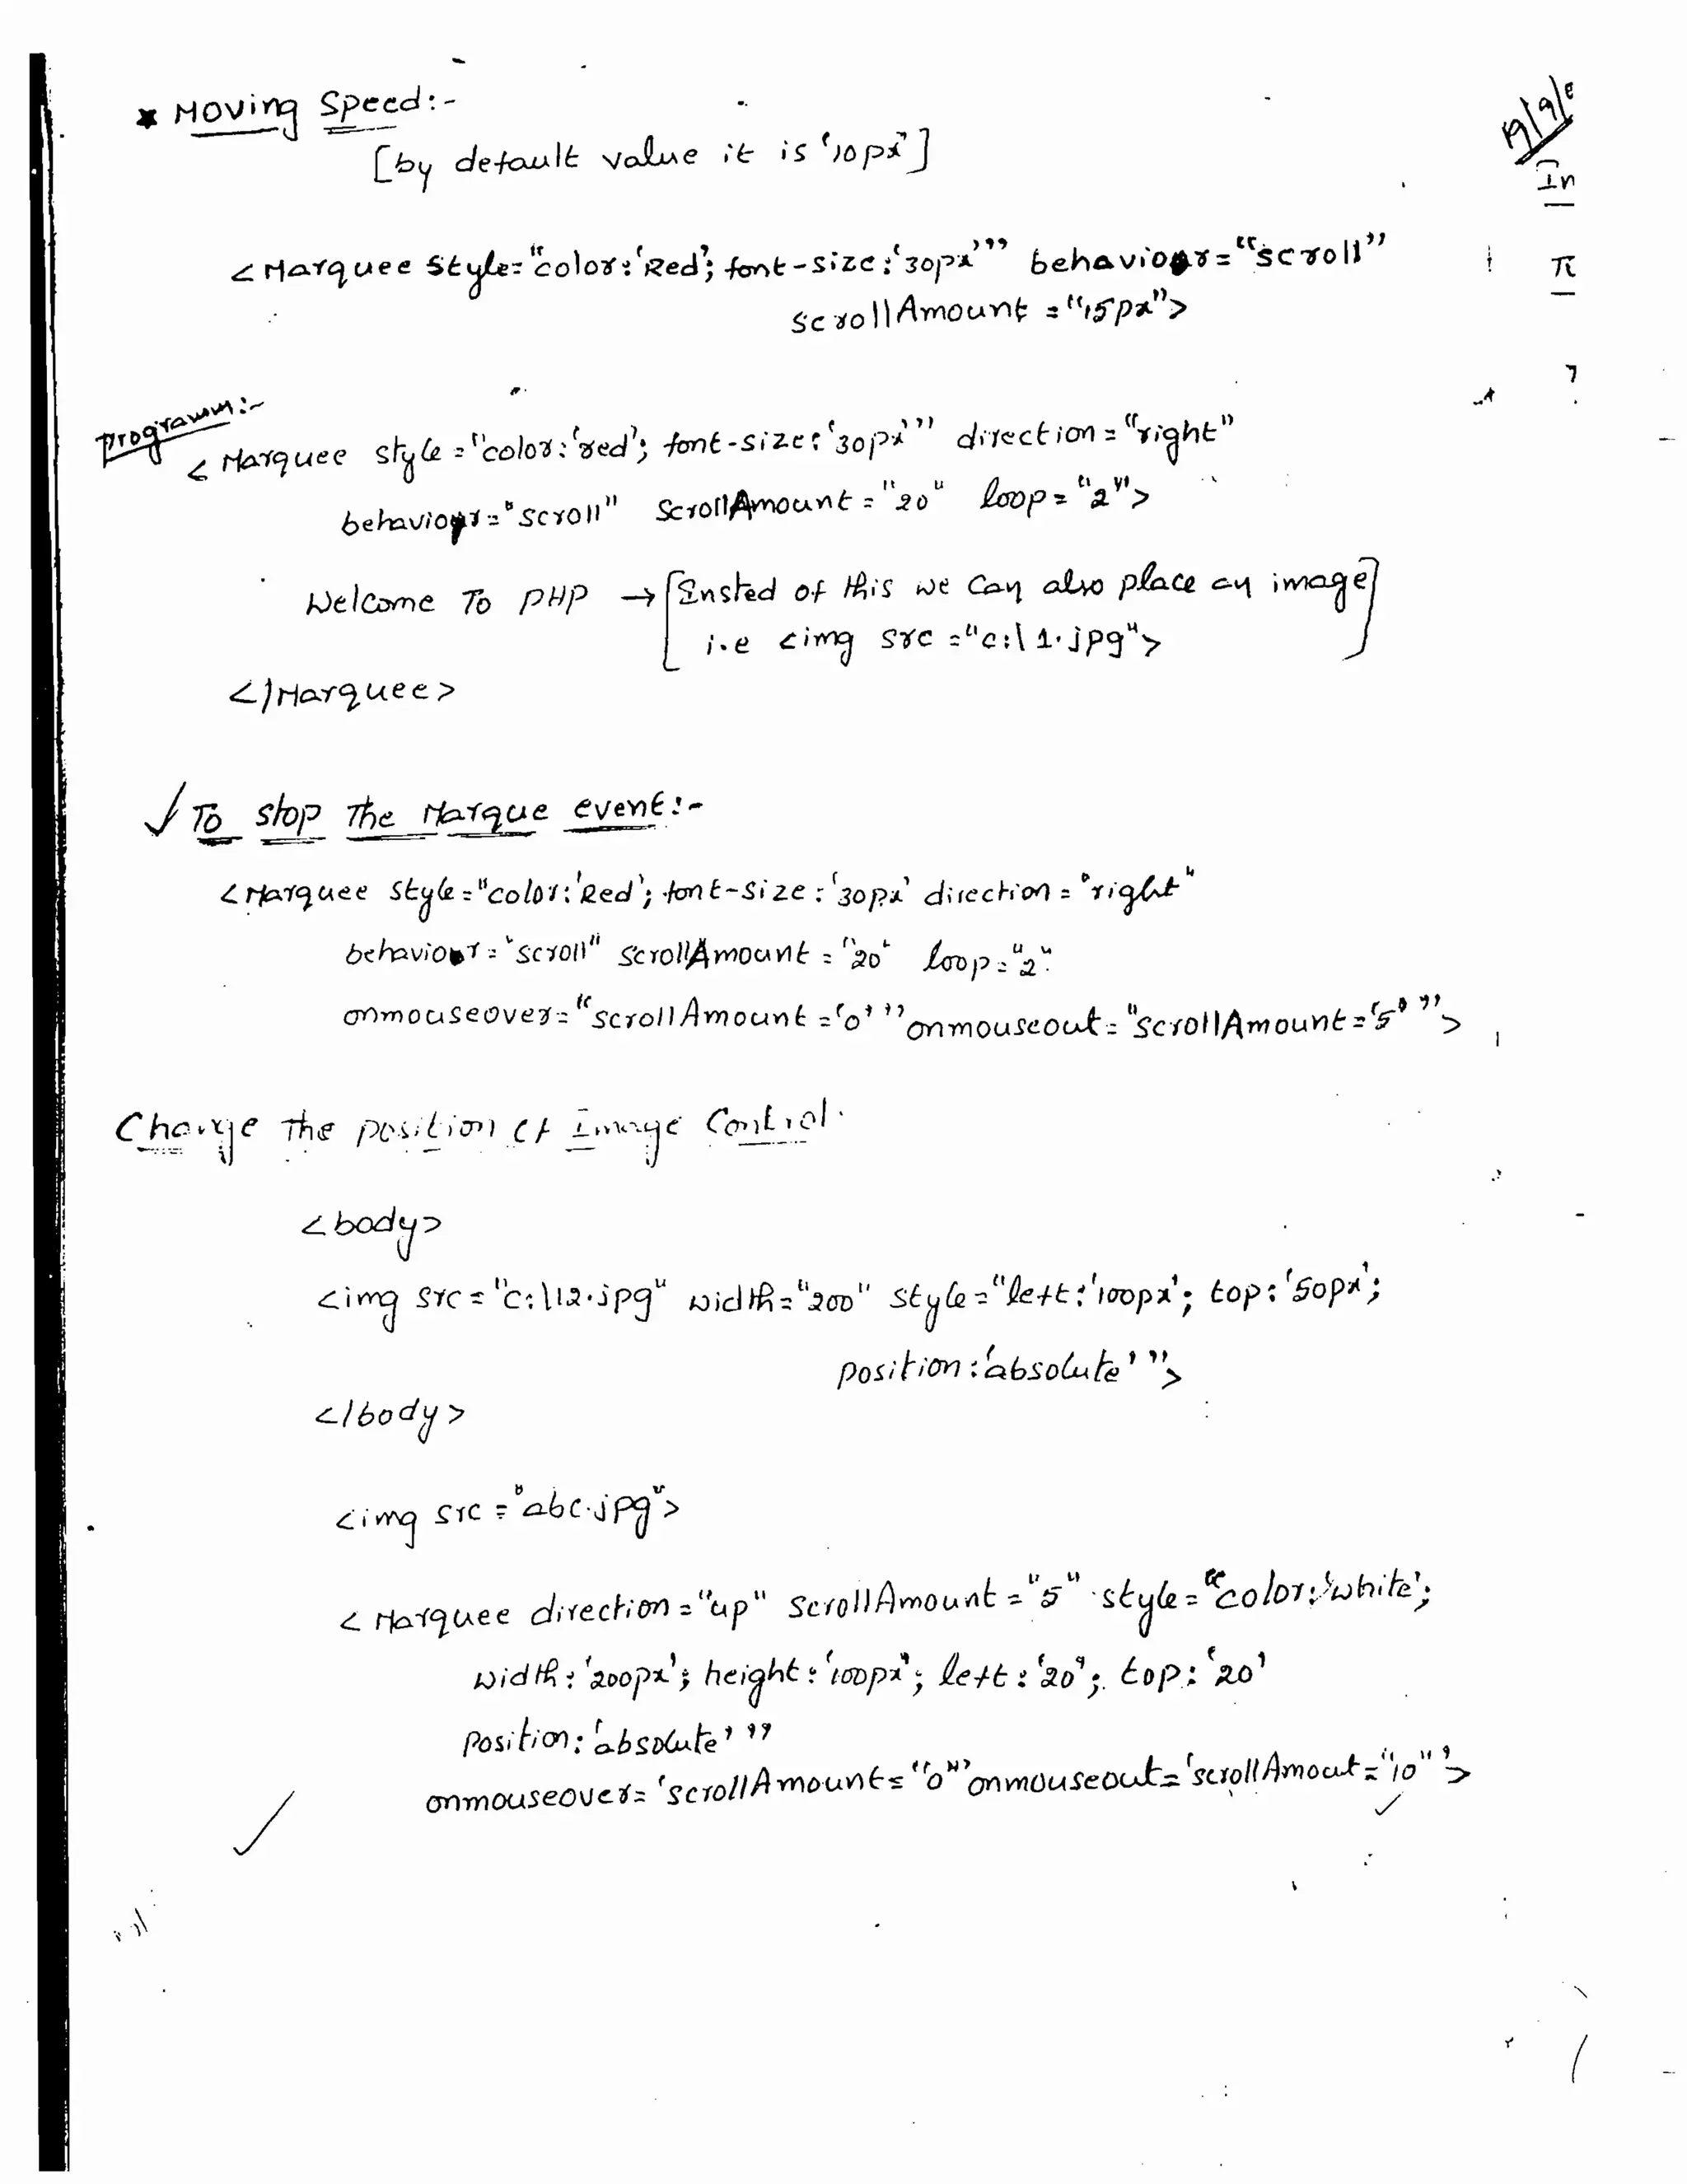 * Moving Speed:-
[by default value it is '10px']
<Marquee Style="color:'Red'; font-size:'30px'" behaviour="scroll"
scrollAmount="15px">
Programm:-
<Marquee style="color:'red'; font-size:'30px'" direction="right"
behaviour="scroll" ScrollAmount="20" loop="2">
Welcome To PHP → [Insted of this we can also place an image
i.e <img src="c:\1.jpg">]
</Marquee>
✓ To stop The Marque event:-
<Marquee style="color:'Red'; font-size:'30px' direction="right"
behaviour="scroll" scrollAmount="20" loop="2"
onmouseover="scrollAmount='0'" onmouseout="scrollAmount='5'">
Change The position of Image Control.
<body>
<img src="c:\12.jpg" width="200" style="left:'100px'; top:'50px';
position:'absolute'">
</body>
<img src="abc.jpg">
<Marquee direction="up" scrollAmount="5" style="color:'white';
width:'200px'; height:'100px'; left:'20'; top:'20'
Position:'absolute'"
onmouseover='scrollAmount="0"' onmouseout='scrollAmout="10"'>
In